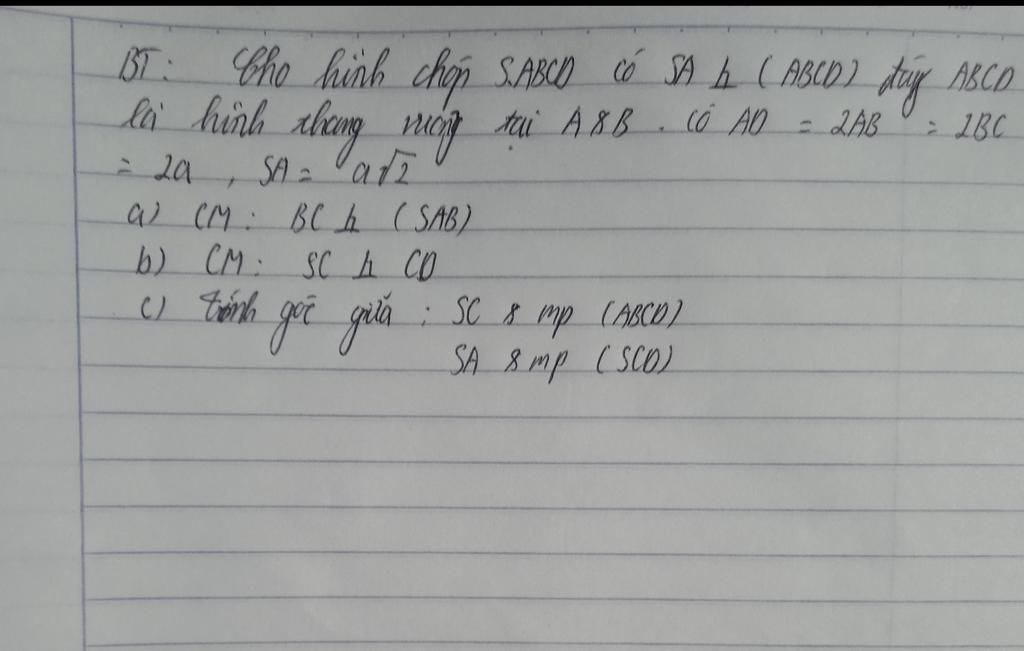 BT: Cho hình chóp S.ABCD có SA ⊥ (ABCD) đáy ABCD
là hình thang vuông tại A & B. có AD = 2AB = 2BC
= 2a, SA = a√2
a) CM: BC ⊥ (SAB)
b) CM: SC ⊥ CD
c) tính góc giữa: SC & mp (ABCD)
SA & mp (SCD)